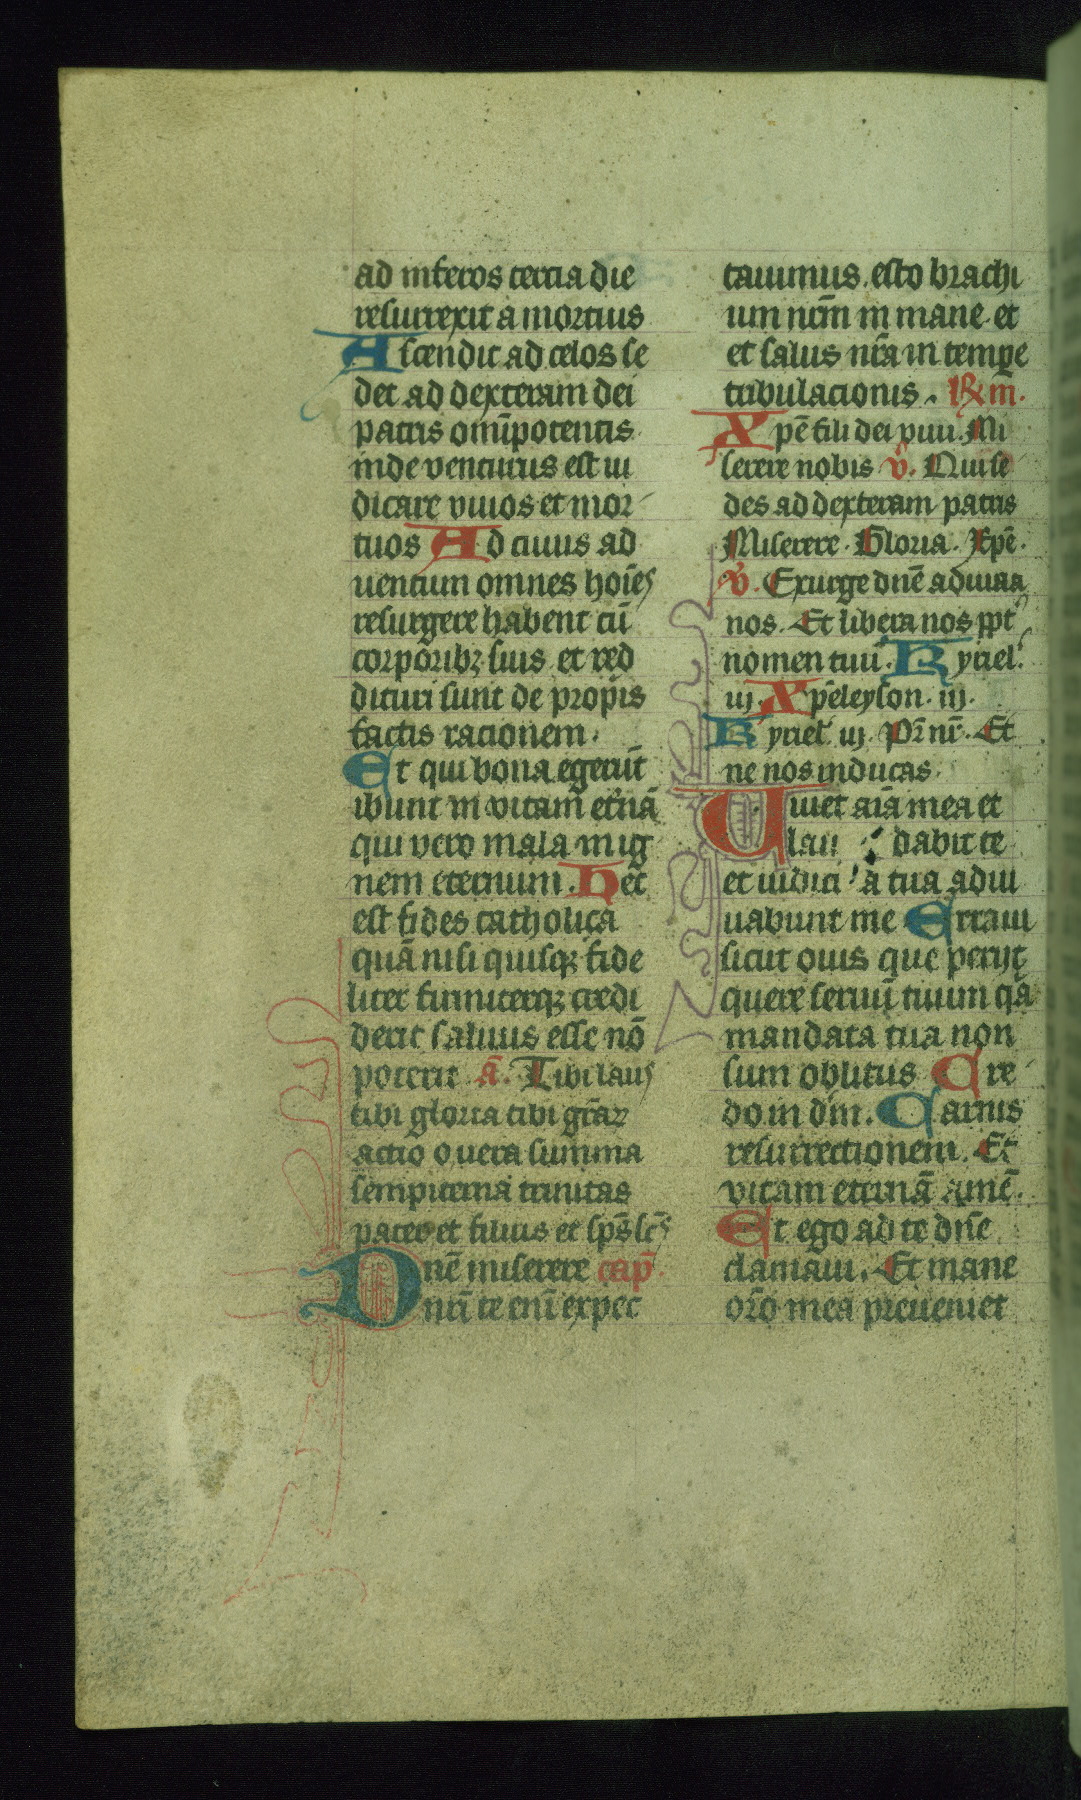 ad inferos tercia die
resurrexit a mortuis
Ascendit ad celos se
det ad dexteram dei
patris om̄ipotentis
inde venturus est iu
dicare viuos et mor
tuos Ad cuius ad
uentum omnes hoīes
resurgere habent cū
corporibꝫ suis et red
dituri sunt de propis
factis racionem.
Et qui bona egerūt
ibunt in vitam et̄nā
qui vero mala in ig
nem eternum. Hec
est fides catholica
quā nisi quisqꝫ fide
liter firmiterqꝫ credi
derit saluus esse nō
poterit a͞. Tibi laus
tibi gloria tibi gr̄aꝝ
actio o uera summa
sempiterna trinitas
pater et filius et sp̄s sc̄s
Dn̄e miserere cap̄.
nr̄i te eni expec
tauimus. esto brachi
um nr̄m in mane. et
et salus nr̄a in temꝑe
tribulacionis. ℟m.
Xp̄e fili dei viui Mi
serere nobis v̄. Qui se
des ad dexteram patris
Miserere. Gloria. Xp̄e.
v̄. Exurge dn̄e adiuua
nos. Et libera nos ꝓpt
nomen tuū. Kyriel.
iij. Xp̄eleyson. iij.
Kyriel iij. Pr̄ nr̄. Et
ne nos inducas.
Uiuet aīa mea et
lau dabit te
et iudici a tua adiu
uabunt me Erraui
sicut ouis que perijt
quere seruū tuum qā
mandata tua non
sum oblitus Cre
do in dm̄. Carnis
resurrectionem. Et
vitam eternā amē.
Et ego ad te dn̄e
clamaui. Et mane
or̄o mea preueniet